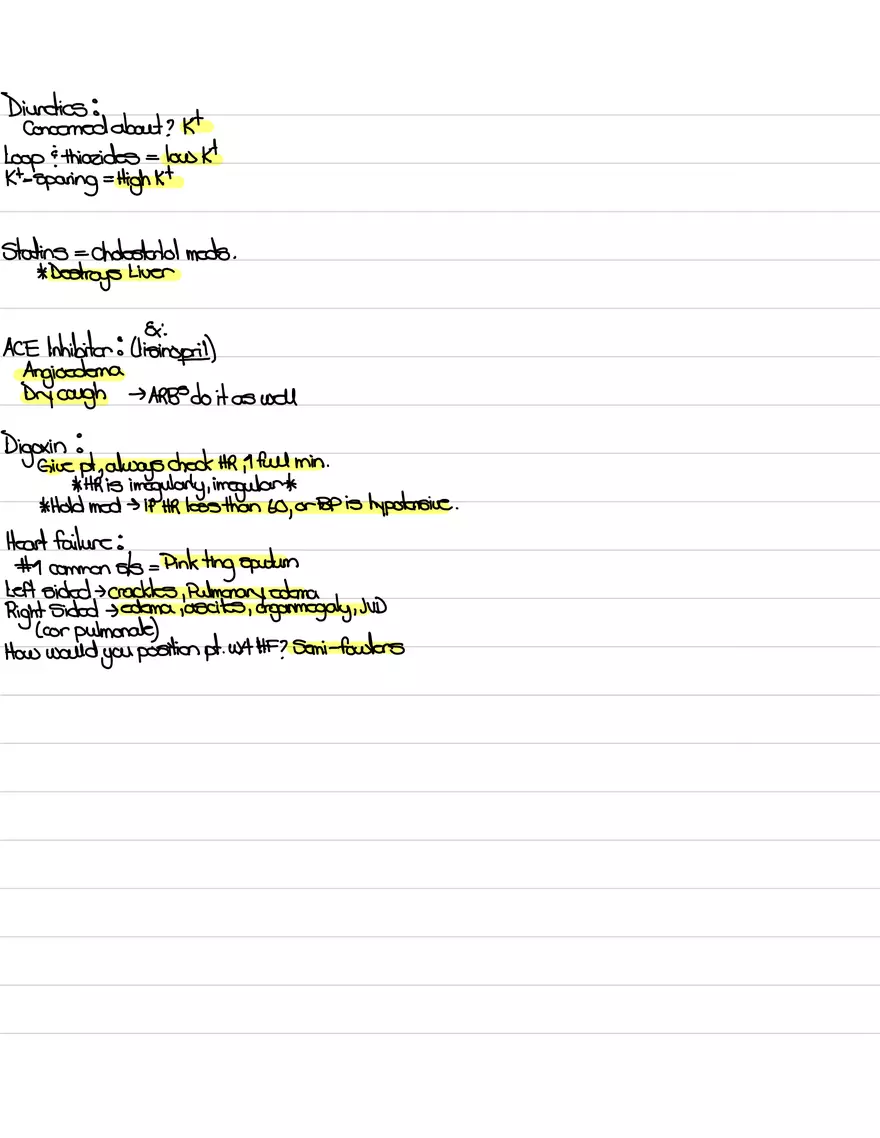 Diuretics:
Concerned about? K+
Loop & thiazides = low K+
K+-sparing = High K+
Statins = cholesterol meds.
*Destroys Liver
Ex:
ACE Inhibitor: (lisinopril)
Angioedema
Dry cough → ARBs do it as well
Digoxin:
Give pt, always check HR, 1 full min.
*HR is irregularly, irregular*
*Hold med → if HR less than 60, or BP is hypotensive.
Heart failure:
#1 common s/s = Pink ting sputum
Left sided → crackles, Pulmonary edema
Right Sided → edema, ascites, organmegaly, JVD
(cor pulmonale)
How would you position pt. w/ HF? Semi-fowlers